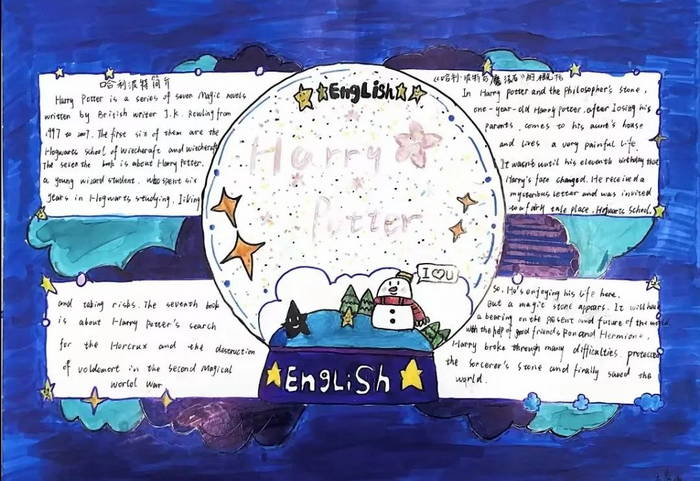 哈利波特简介
Harry Potter is a series of seven Magic novels
written by British writer J.K. Rowling from
1997 to 2007. The first six of them are the
Hogwarts school of Witchcraft and witchcraft
The seven the book is about Harry Potter,
a young wizard student, who spent six
years in Hogwarts studying, living
and taking risks. The seventh book
is about Harry Potter's search
for the Horcrux and the destruction
of voldemort in the second magical
world War
English
Harry
Potter
I U
EngLiSh
《哈利·波特与魔法石》的
In Harry potter and the philosopher's stone,
one-year-old Harry Potter, after losing his
parents, comes to his aunt's house
and lives a very painful life.
It wasn't until his eleventh birthday that
Harry's face changed. He received a
mysterious letter and was invited
to a fairy tale place, Hogwarts school.
So, He's enjoying his life here.
But a magic stone appears. It will have
a bearing on the present and future of the world
with the help of good friends Ron and Hermione,
Harry broke through many difficulties, protected
the sorcerer's stone and finally saved the
world.